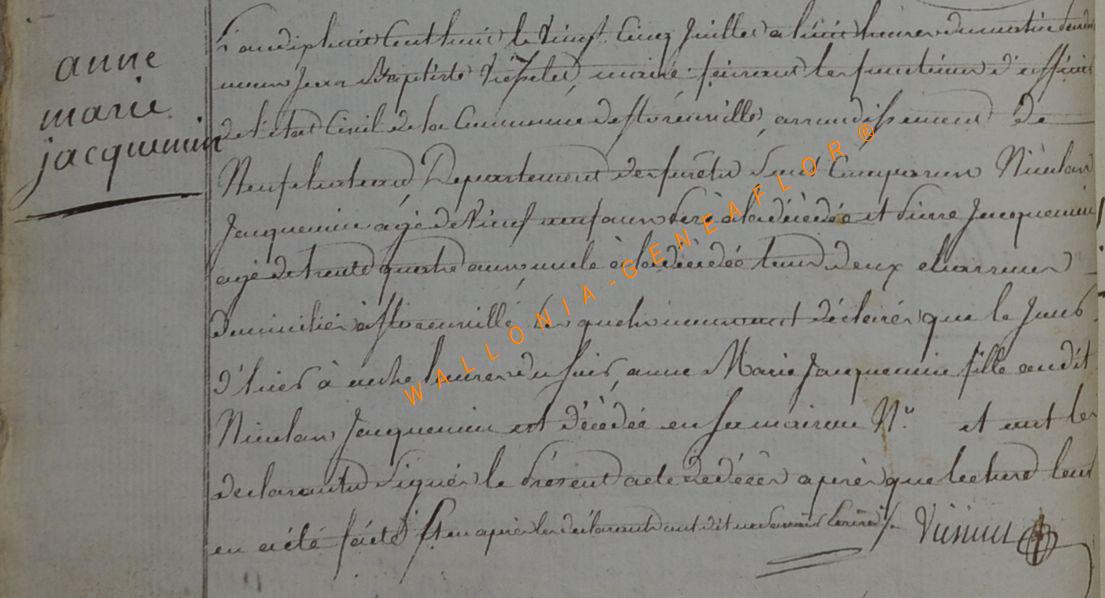 anne
marie
jacquemin
L'an dix huit cent huit le vingt cinq juillet à huit heures du matin devant
nous Jean Baptiste maire faisant les fonctions d'officier
de l'état Civil de la Commune de florenville, arrondissement de
Neufchateau Departement des forêts Sont Comparus Nicolas
Jacquemin agé de vingt neuf ans père à la décédée et pierre Jacquemin
agé de trente quatre ans oncle à la décédée tous deux
domiciliés à florenville les quels nous ont déclarés que le Jour
d'hier à heures du soir, anne Marie Jacquemin fille audit
Nicolas Jacquemin est décédée en sa maison N.° et ont les
declarants Signés le Présent acte de décès après que lecture leur
en a été faite et après les déclarants ont dit ne savoir
WALLONIA-GENEAFLOR®